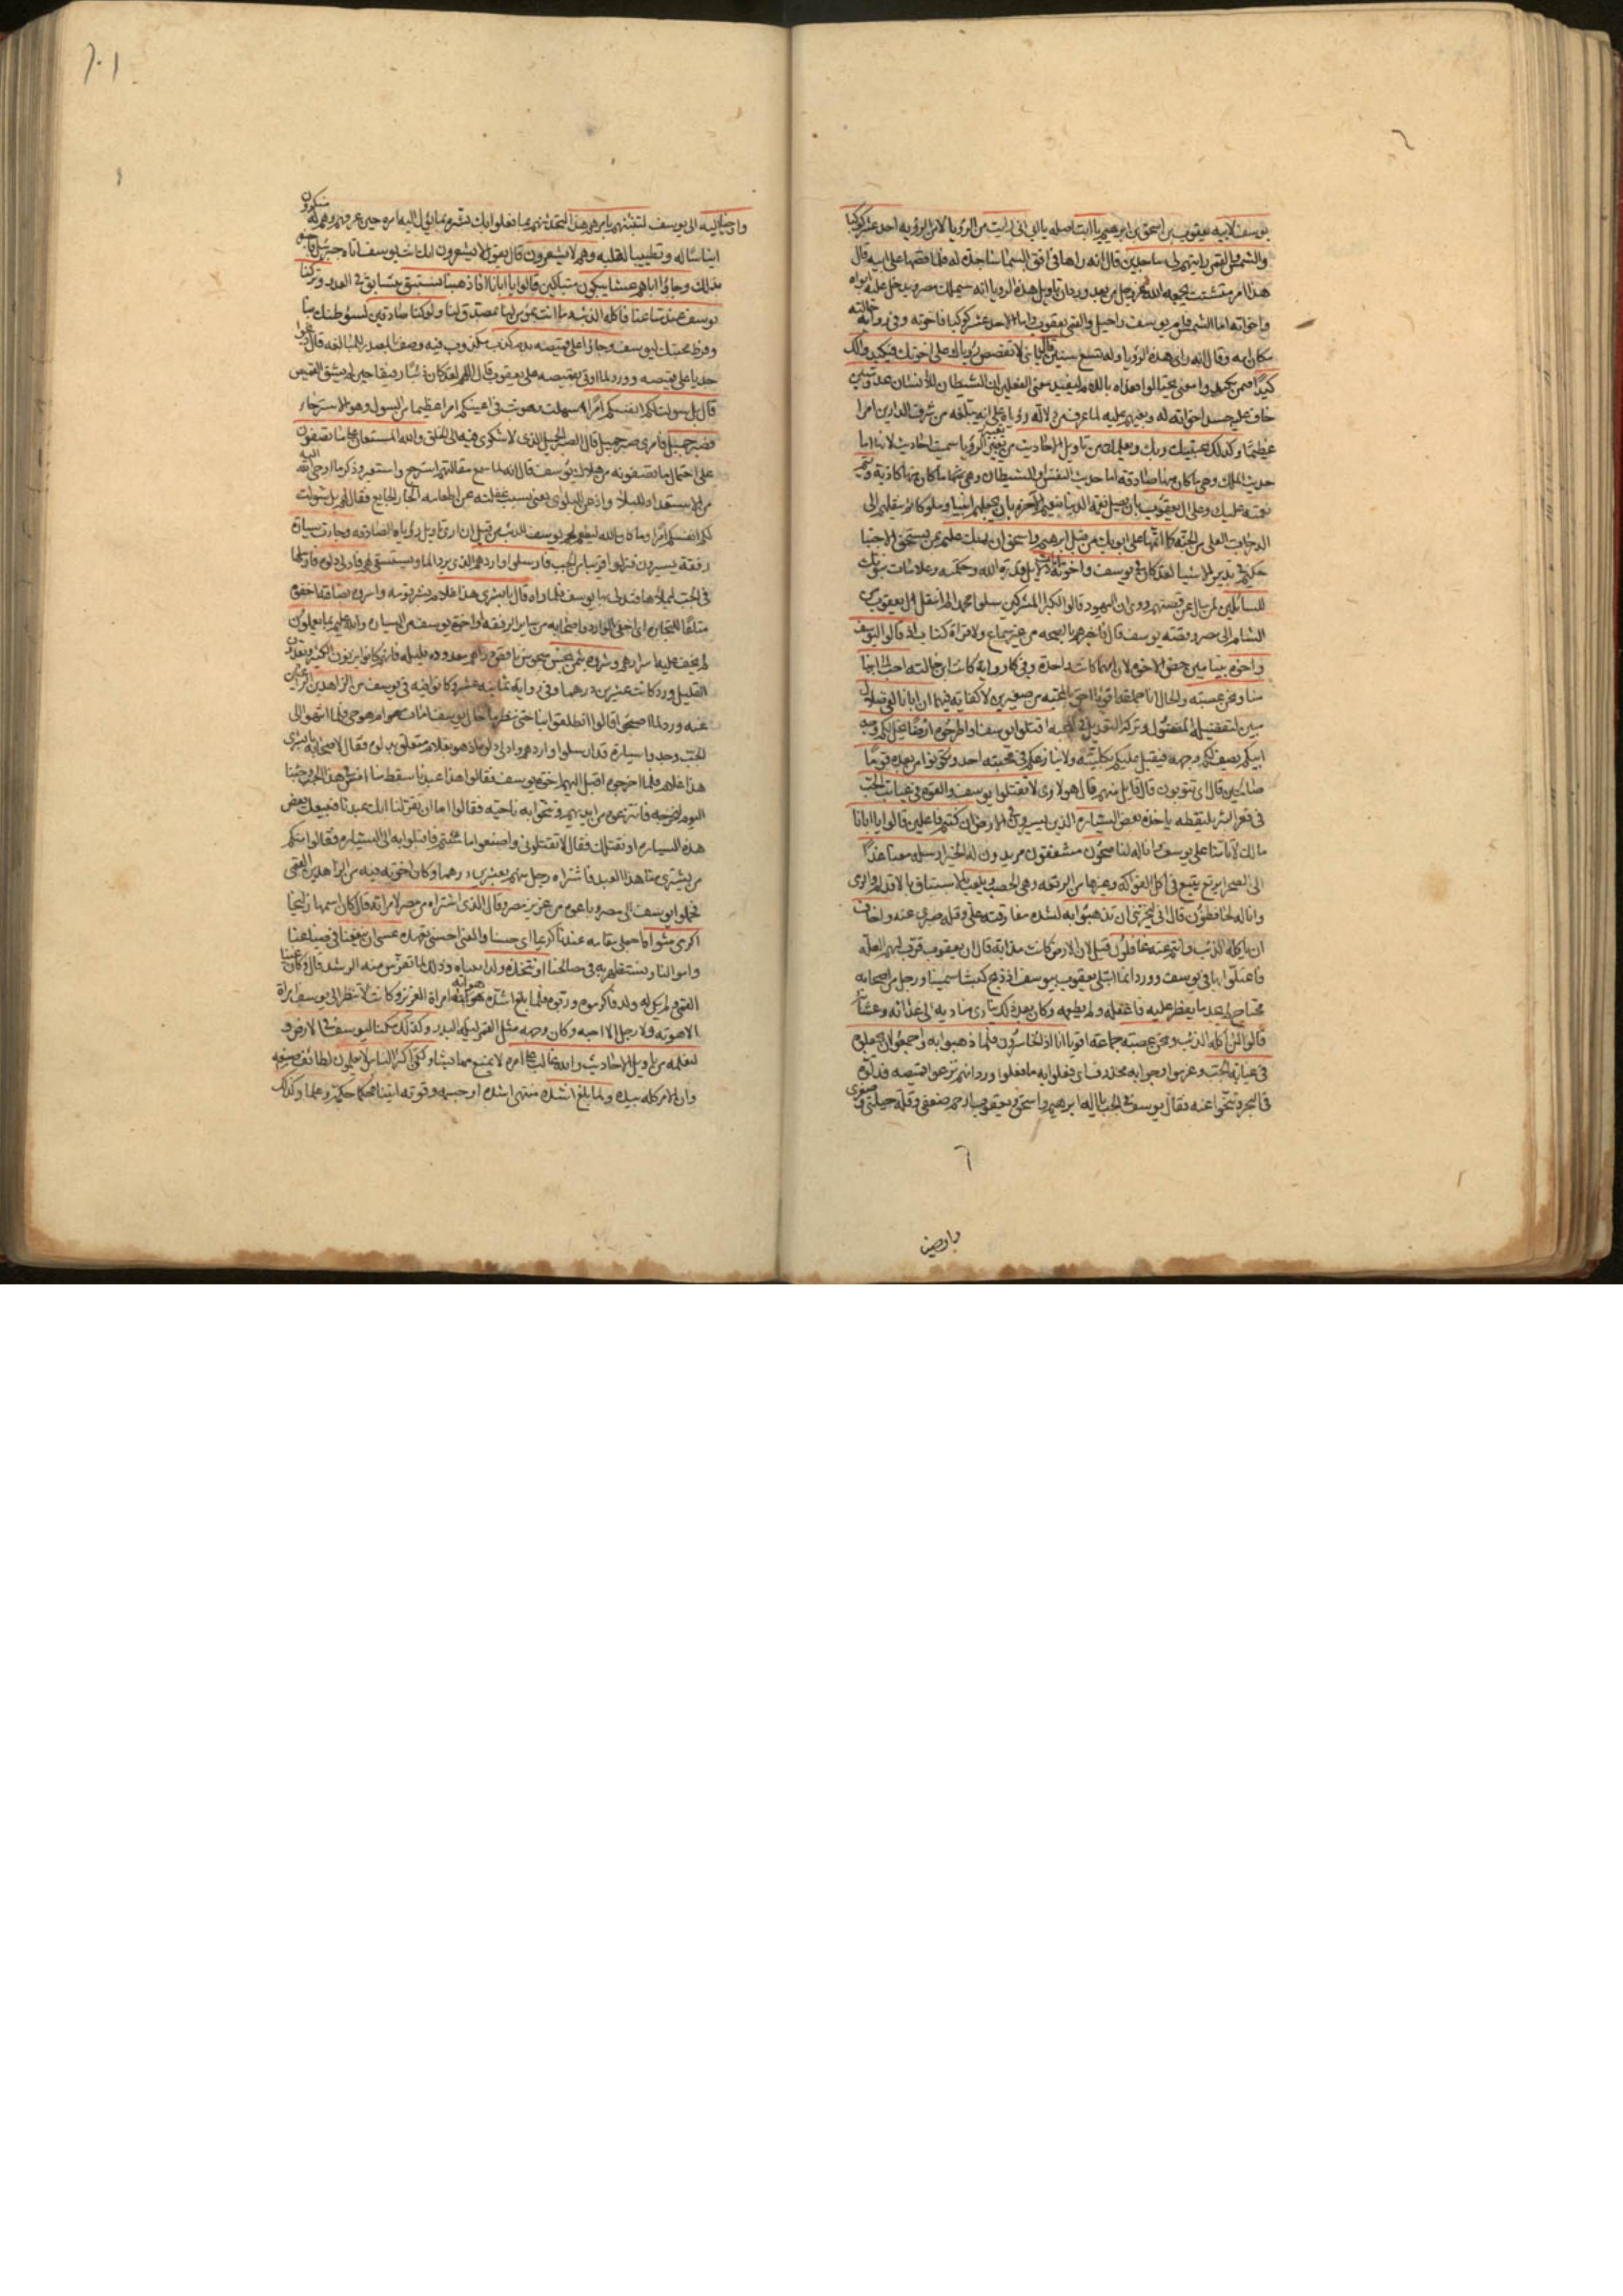 يوسف لابيه يعقوب بن اسحق بن ابرهيم يا ابت اصله يا ابي اني رايت من الرؤيا لا من الرؤيه احد عشر كوكبا
والشمس والقمر رايتهم لي ساجدين قال انه راها في افق السما ساجدة له فلما قصها على ابيه قال
هذا امر متشتت يجمعه الله عز وجل من بعد وردان تاويل هذه الرويا انه سيملك مصر ويدخل عليه ابواه
واخوته اما الشمس فام يوسف راحيل والقمر يعقوب واما الاحد عشر كوكبا فاخوته وفي رواية خالته
مكان امه وقال انه راى هذه الرؤيا وله تسع سنين قال يا بني لا تقصص رؤياك على اخوتك فيكيدوا لك
كيدا ضمن يكيدوا معنى يحتالوا فعداه باللام ليفيد معنى الفعلين ان الشيطان للانسان عدو مبين
خاف عليه حسد اخوانه له وبغيهم عليه لما عرف من دلالة رؤياه على انه يبلغه من شرف الدارين امرا
عظيما وكذلك يجتبيك ربك ويعلمك من تاويل الاحاديث من تعبير الرؤيا سميت احاديث لانها اما
حديث الملك وهي ما كان منها صادقة اما حديث النفس او الشيطان وهي ما كان منها كاذبة ويتم
نعمته عليك وعلى ال يعقوب بان يصل نعمة الدنيا بنعيم الاخرة بان يجعلهم انبيا وملوكا ثم ينقلهم الى
الدرجات العلى من الجنة كما اتمها على ابويك من قبل ابرهيم واسحق ان ربك عليم بمن يستحق الاجتبا
حكيم في تدبير الاشيا لقد كان في يوسف واخوته ايات دلايل قدرة الله وحكمته وعلامات نبوتك
للسائلين لمن سال عن قصتهم روي ان اليهود قالوا لكبرا المشركين سلوا محمدا لم انتقل ال يعقوب من
الشام الى مصر وقصة يوسف قال فاخبرهم بالصحه من غير سماع ولا قراة كتاب اذ قالوا ليوسف
واخوه بنيامين خص بالاخوه لان امهما كانت واحدة وفي رواية كانت ابن خالته احب الى ابينا
منا ونحن عصبة والحال انا جماعة اقويا احق بالمحبة من صغيرين لا كفاية فيهما ان ابانا لفي ضلال
مبين لتفضيله المفضول وتركه التعديل في المحبه اقتلوا يوسف او اطرحوه ارضا يخل لكم وجه
ابيكم يصف لكم وجهه فيقبل عليكم بكليته ولا ينازعكم في محبته احد وتكونوا من بعده قوما
صالحين قال اي تتوبون قال قايل منهم قال هو لاوى لا تقتلوا يوسف والقوه في غيابت الجب
في قعر البئر يلتقطه ياخذه بعض السيارة الذين يسيرون في الارض ان كنتم فاعلين قالوا يا ابانا
مالك لا تامنا على يوسف وانا له لناصحون مشفقون مريدون له الخير ارسله معنا غدا
الى الصحرا يرتع يتسع في اكل الفواكه وغيرها من الرتعه وهي الخصب ويلعب بالاستباق بالاقدام والرمى
وانا له لحافظون قال اني ليحزنني ان تذهبوا به لشدة مفارقته علي وقلة صبري عنه واخاف
ان ياكله الذئب وانتم عنه غافلون قيل لان الارض كانت مذابه قال ان يعقوب قرب لهم العلة
فاعتلوا بها في يوسف وورد انما ابتلى يعقوب بيوسف اذ ذبح كبشا سمينا ورجل من اصحابه
محتاج لم يجد ما يفطر عليه فاغفله ولم يطعمه وكان بعد ذلك ينادى مناديه الى غدائه وعشائه
قالوا لئن اكله الذئب ونحن عصبة جماعة اقويا انا اذا لخاسرون فلما ذهبوا به واجمعوا ان يجعلوه
في غيابة الجب وعزموا وجوابه محذوف اي فعلوا به ما فعلوا ورد انهم نزعوا قميصه فدلوه
في البئر وتنحوا عنه فقال يوسف في الجب يا اله ابرهيم واسحق ويعقوب ارحم ضعفي وقلة حيلتي وصغرى
٦
واوحينا
٢٠١
واوحينا اليه الى يوسف لتنبئنهم بامرهم هذا لتحدثنهم بما فعلوا بك بشره بما يؤل اليه امره حين عرفهم وهم له منكرون
ايناسا له وتطييبا لقلبه وهم لا يشعرون قال يقول لا يشعرون انك انت يوسف اتاه جبرئيل فاخبره
بذلك وجاؤا اباهم عشا يبكون متباكين قالوا يا ابانا انا ذهبنا نستبق نتسابق في العدو وتركنا
يوسف عند متاعنا فاكله الذئب وما انت بمؤمن لنا بمصدق لنا ولو كنا صادقين لسؤ ظنك بنا
وفرط محبتك ليوسف وجاؤا على قميصه بدم كذب مكذوب فيه وصف بالمصدر للمبالغه قال ذبحوا
جديا على قميصه وورد لما اوتي بقميصه على يعقوب قال اللهم لقد كان ذئبا رفيقا حين لم يشق القميص
قال بل سولت لكم انفسكم امرا سهلت وهونت في اعينكم امرا عظيما من السول وهو الاسترخاء
فصبر جميل فامرى صبر جميل قال الصبر الجميل الذى لا شكوى فيه الى الخلق والله المستعان على ما تصفون
على احتمال ما تصفونه من هلاك يوسف قال انه لما سمع مقالتهم استرجع واستعبر وذكر ما اوحى الله اليه
من الاستعداد للبلا واذعن للبلوى يعني بسبب غفلته عن اطعامه الجار الجايع فقال لهم بل سولت
لكم انفسكم امرا وما كان الله ليطعم لحم يوسف الذئب من قبل ان ارى تاويل رؤياه الصادقة وجاءت سيارة
رفقة يسيرون فنزلوا قريبا من الجب فارسلوا واردهم الذى يرد الما ويستسقى لهم فادلى دلوه فارسلها
في الجب ليملاها فتدلى بها يوسف فلما راه قال يا بشرى هذا غلام بشر قومه واسروه بضاعة اخفوه
متاعا للتجارة اى اخفى الوارد واصحابه من ساير الرفقه او اخوة يوسف من السياره والله عليم بما يعملون
لم يخف عليه اسرارهم وشروه بثمن بخس مبخوس ناقص دراهم معدودة قليله فانهم كانوا يزنون الكثير ويعدون
القليل وورد كانت عشرين درهما وفي رواية ثمانية عشر وكانوا فيه في يوسف من الزاهدين الراغبين
عنه وورد لما اصبحوا قالوا انطلقوا بنا حتى ننظر ما حال يوسف امات ام هو حي فلما انتهوا الى
الجب وجدوا سيارة قد ارسلوا واردهم وادلى دلوه اذ هو بغلام متعلق بدلوه فقال لاصحابه يا بشرى
هذا غلام فلما اخرجوه اقبل اليهم اخوة يوسف فقالوا هذا عبدنا سقط منا امس في هذا الجب وجئنا
اليوم لنخرجه فانتزعوه من ايديهم وتنحوا به ناحية فقالوا اما ان تقر لنا انك عبدنا فنبيعك بعض
هذه السيارة او نقتلك فقال لا تقتلوني واصنعوا ما شئتم فاقبلوا به الى السيارة فقالوا امنكم
من يشترى منا هذا العبد فاشتراه رجل منهم بعشرين درهما وكان اخوته فيه من الزاهدين القمي
فحملوا يوسف الى مصر وباعوه من عزيز مصر وقال الذى اشتراه من مصر لامراته قال كان اسمها زليخا
اكرمى مثواه اجعلى مقامه عندنا كريما اى حسنا والمعنى احسنى تعهده عسى ان ينفعنا في ضياعنا
واموالنا ونستظهر به في مصالحنا او نتخذه ولدا نتبناه وذلك لما تفرس منه الرشد قال وكان عنينا
القمي ولم يكن له ولد فاكرموه وربوه فلما بلغ اشده هوته امراة العزيز وكانت لا تنظر الى يوسف امراة
الا هوته ولا رجل الا احبه وكان وجهه مثل القمر ليلة البدر وكذلك مكنا ليوسف في الارض و
لنعلمه من تاويل الاحاديث والله غالب على امره لا يمنع مما يشا ولكن اكثر الناس لا يعلمون لطائف صنعه
وان الامر كله بيده ولما بلغ اشده منتهى اشده او جسمه وقوته اتيناه حكما حكمة وعلما وكذلك